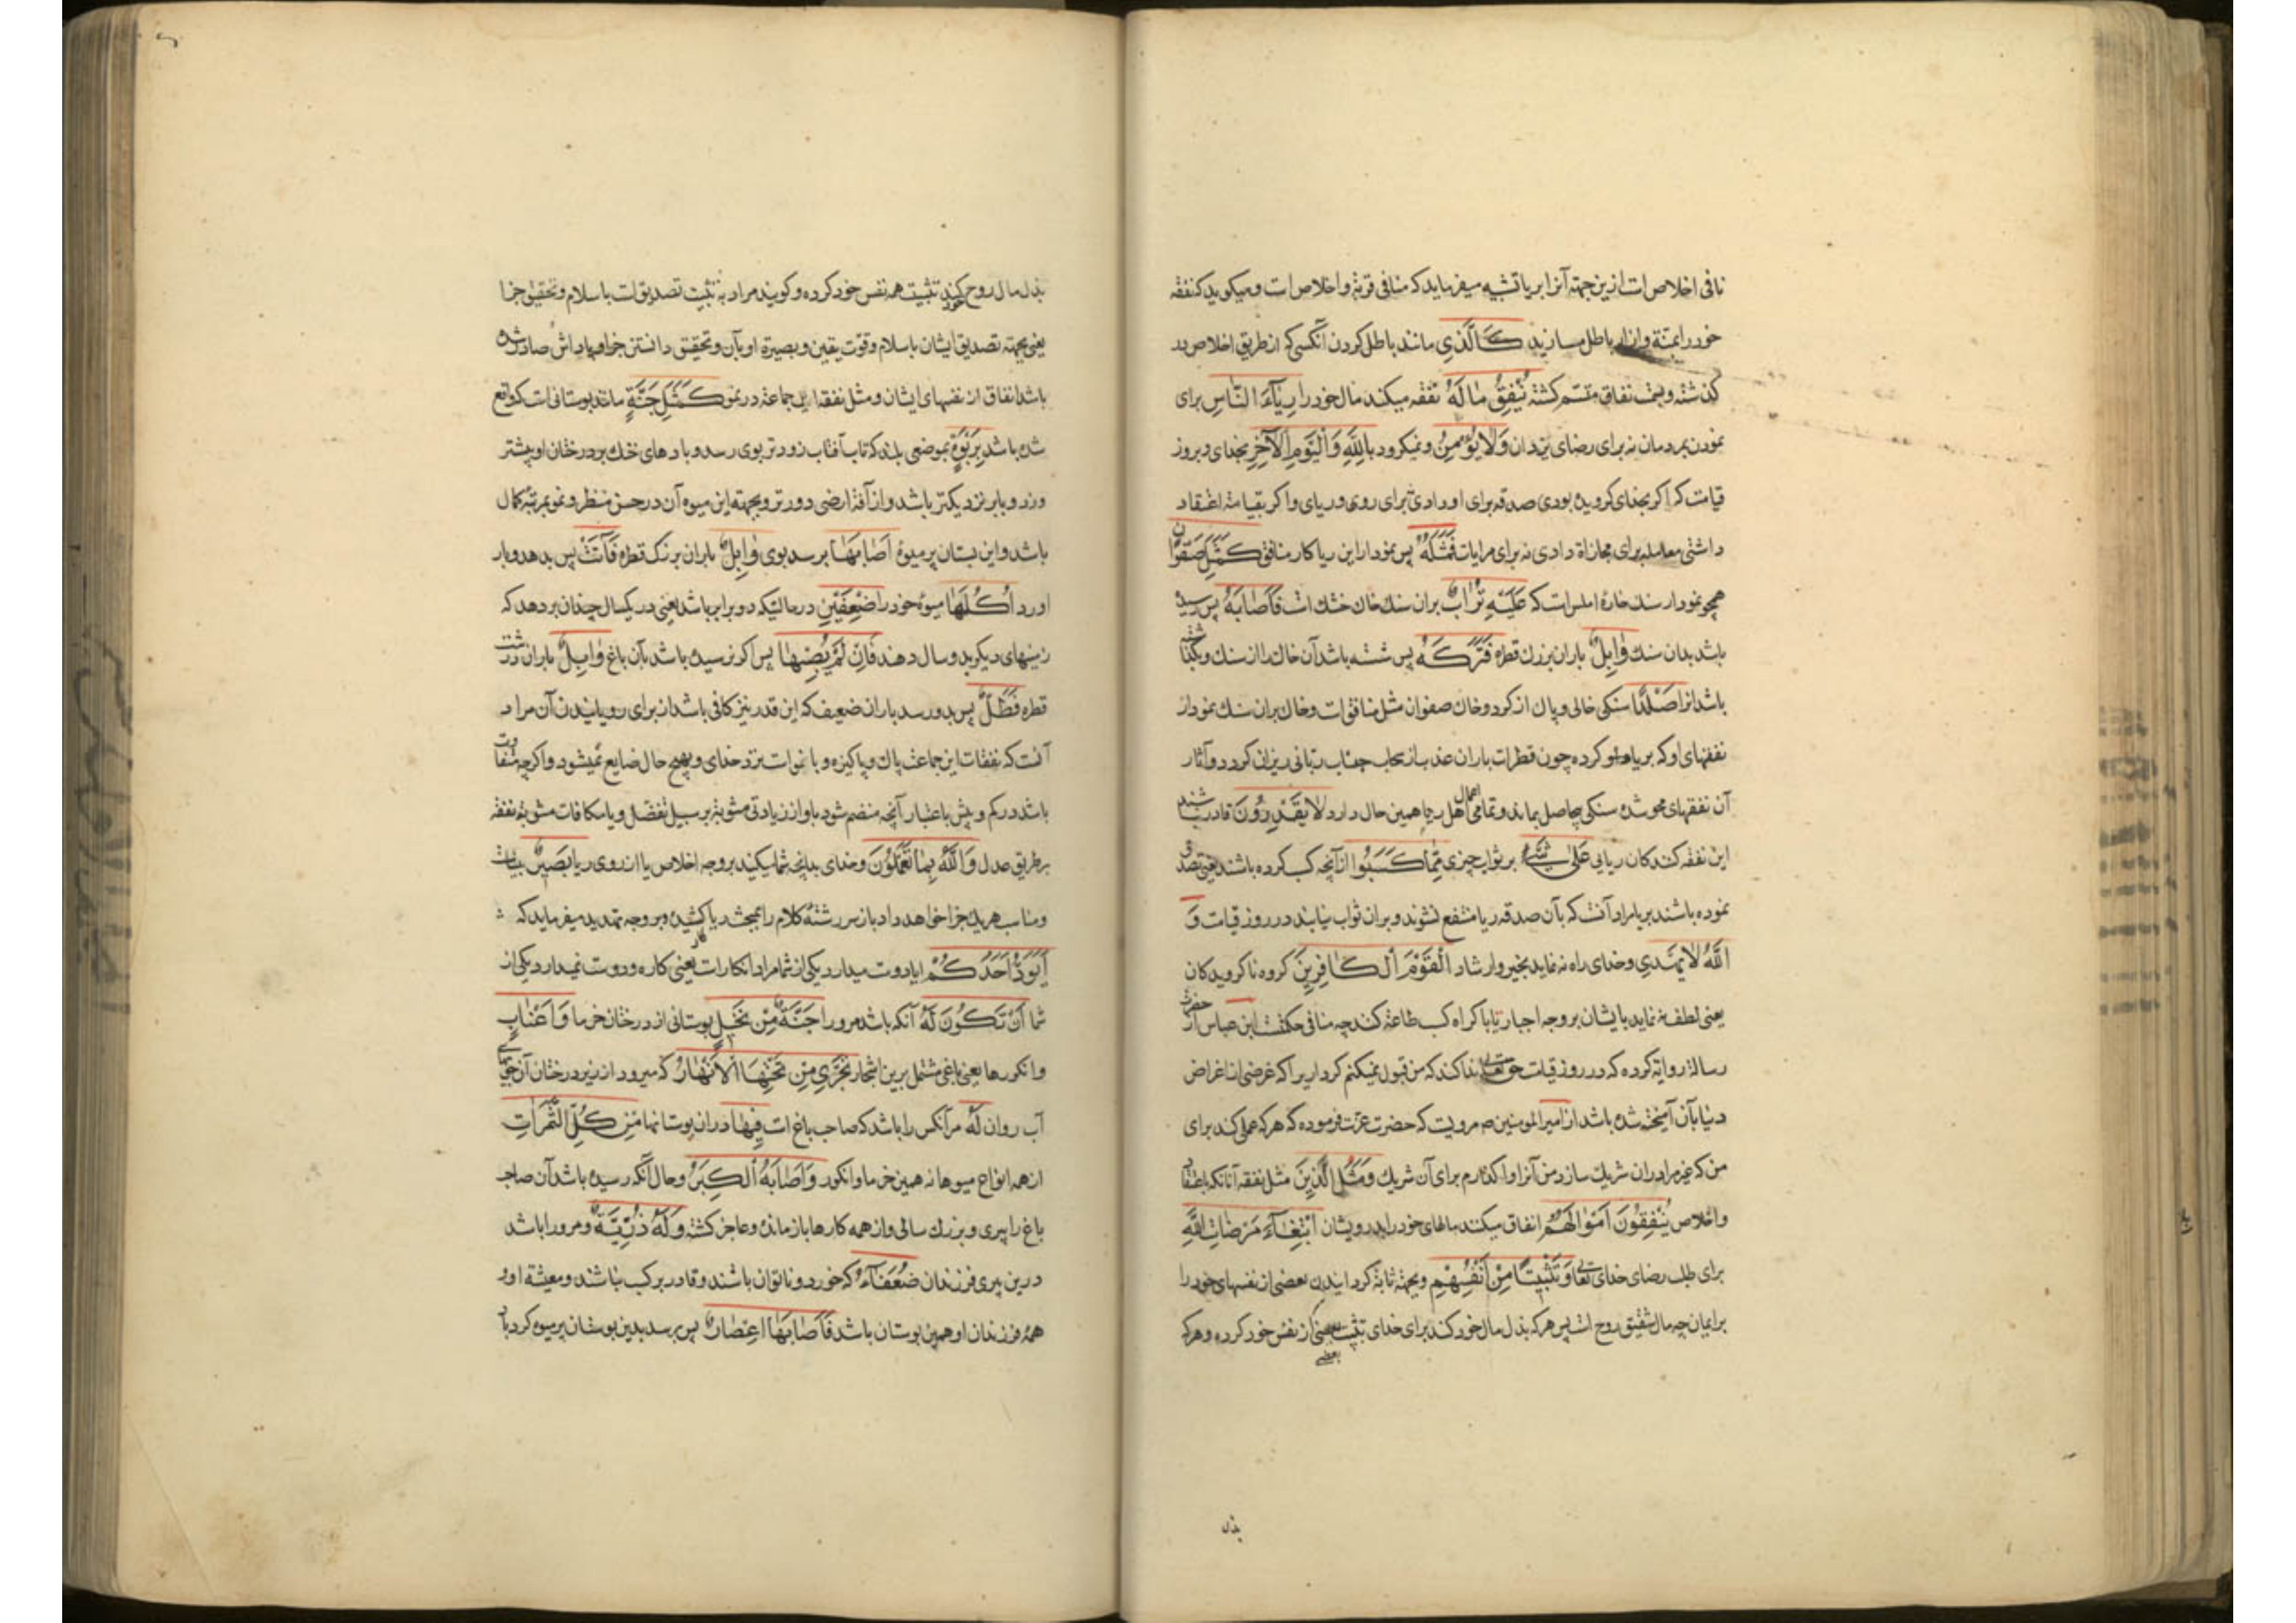 نافی اخلاص است ازین جهته آنرا بریا تشبیه میفرماید که منافی قربة و اخلاص است و میکوید که نفقه
خود را بمنة و ازار باطل مسازید كَالَّذِي مانند باطل کردن آنکسی که از طریق اخلاص بد
کذشته و بسمت نفاق متسم کشته يُنْفِقُ مٰا لَهُ نفقه میکند مال خود را رِيٰآءَ النّٰاسِ برای
نمودن بمردمان نه برای رضای یزدان وَلٰا يُؤْمِنُ و نمیکرود بِاللّٰهِ وَالْيَوْمِ الْآخِرِ بخدای و بروز
قیامت که اکر بخدای کرویده بودی صدقه برای او دادی نه برای روی و ریای و اکر بقیامة اعتقاد
داشتی معامله برای مجازاة دادی نه برای مرایات فَمَثَلُهُ پس نمودار این ریا کار منافق كَمَثَلِ صَفْوٰانٍ
همچو نمودار سنك خارهٔ املس است که عَلَيْهِ تُرٰابٌ بران سنك خاك خشك است فَاَصٰابَهُ پس رسیده
باشد بدان سنك وٰابِلٌ باران بزرك قطره فَتَرَكَهُ پس شسته باشد آن خاك را از سنك و بکذاشته
باشد انرا صَلْدًا سنکی خالی و پاك از کرد و خاك صفوان مثل منافق است و خاك بران سنك نمودار
نفقهای او که بریا کرده چون قطرات باران عذب از سحاب عتاب ربانی ریزان کردد و آثار
آن نفقهای محو شده سنکی بیحاصل بماند و تمامی اعمال اهل ریا همین حال دارد لٰا يَقْدِرُونَ قادر نباشند
این نفقه کنندکان ریایی عَلىٰ شَيْءٍ بر ثواب چیزی مِمّٰا كَسَبُوا از آنچه کسب کرده باشند یعنی تصدق
نموده باشند بریا مراد آنست که بآن صدقه ریا منتفع نشوند و بران ثواب نیابند در روز قیامت وَ
اللّٰهُ لٰا يَهْدِي و خدای راه نه نماید بخیر و ارشاد الْقَوْمَ الْكٰافِرِينَ کروه ناکرویدکان
یعنی لطف نه نماید بایشان بر وجه اجبار تا باکراه کسب طاعة کنند چه منافی حکمتست ابن عباس از حضرت
رسالة روایة کرده که در روز قیامت حق تعالی ندا کند که من قبول نمیکنم کرداریرا که غرضی از اغراض
دنیا بآن آمیخته شده باشد از امیر المومنین م مرویست که حضرت عزت فرموده که هر که عملی کند برای
من که غیر مرا دران شریك سازد من آنرا واکذارم برای آن شریك وَمَثَلُ الَّذِينَ مثل نفقه آنانکه باعتقاد
و اخلاص يُنْفِقُونَ اَمْوٰالَهُمُ انفاق میکنند مالهای خود را بدرویشان ابْتِغٰآءَ مَرْضٰاتِ اللّٰهِ
برای طلب رضای خدای تعالی وَتَثْبِيتًا مِنْ اَنْفُسِهِمْ و بجهته ثابة کردانیدن بعضی از نفسهای خود را
بر ایمان چه مال شقیق روح است پس هر که بذل مال خود کند برای خدای تثبیت بعضی از نفس خود کرده و هر که
بعضی
بذل
بذل مال و روح خود کند تثبیت همه نفس خود کرده و کویند مراد به تثبیت تصدیق است باسلام و تحقیق جزا
یعنی بجهته تصدیق ایشان باسلام و قوّت یقین و بصیرة او بآن و تحقیق دانستن جزا و پاداش صادر شده
باشد انفاق از نفسهای ایشان و مثل نفقه این جماعة در نمو كَمَثَلِ جَنَّةٍ مانند بوستانی است که واقع
شده باشد بِرَبْوَةٍ بموضعی بلند که تاب آفتاب زودتر بوی رسد و بادهای خنك بر درختان او بیشتر
وزد و بابر نزدیکتر باشد و از آفة ارضی دورتر و بجهته این میوه آن در حسن منظر و نمو بمرتبهٔ کمال
باشد و این بستان پر میوهٔ اَصٰابَهٰا برسد بوی وٰابِلٌ باران بزرک قطره فَآتَتْ پس بدهد و بار
اورد اُكُلَهٰا میوهٔ خود را ضِعْفَيْنِ در حالتیکه دو برابر باشد یعنی در یکسال چندان بر دهد که
زمینهای دیکر بدو سال دهند فَاِنْ لَمْ يُصِبْهٰا پس اکر نرسیده باشد بآن باغ وٰابِلٌ باران درشت
قطره فَطَلٌّ پس بدو رسد باران ضعیف که این قدر نیز کافی باشد از برای رویانیدن آن مراد
آنست که نفقات این جماعت پاك و پاکیزه و با ثوابست نزد خدای و بهیچ حال ضایع نمیشود و اکر چه متفاوت
باشد در کم و بیش باعتبار آنچه منضم شود باو از زیادتی مثوبة بر سبیل تفضل و یا مکافات مثوبة نفقه
بر طریق عدل وَاللّٰهُ بِمٰا تَعْمَلُونَ و خدای بدانچه شما میکنید بر وجه اخلاص یا از روی ریا بَصِيرٌ بیناست
و مناسب هر یك جزا خواهد داد باز سر رشتهٔ کلام را بمبحث ریا کشیده و بر وجه تهدید میفرماید که
اَيَوَدُّ اَحَدُكُمْ ایا دوست میدارد یکی از شما مراد انکار است یعنی کاره و دوست نمیدارد یکی از
شما اَنْ تَكُونَ لَهُ آنکه باشد مر او را جَنَّةٌ مِنْ نَخِيلٍ بوستانی از درختان خرما وَاَعْنٰابٍ
و انکورها یعنی باغی مشتمل برین اشجار تَجْرِي مِنْ تَحْتِهَا الْاَنْهٰارُ که میرود از زیر درختان آن جویهای
آب روان لَهُ مر آنکس را باشد که صاحب باغ است فِيهٰا دران بوستانها مِنْ كُلِّ الثَّمَرٰاتِ
از همه انواع میوها نه همین خرما و انکور وَاَصٰابَهُ الْكِبَرُ و حال آنکه رسیده باشد آن صاحب
باغ را پیری و بزرك سالی و از همه کارها باز مانده و عاجز کشته وَلَهُ ذُرِّيَّةٌ و مر او را باشد
درین پیری فرزندان ضُعَفٰآءُ که خورد و ناتوان باشند و قادر بر کسب نباشند و معیشة او و
همهٔ فرزندان او همین بوستان باشد فَاَصٰابَهٰا اِعْصٰارٌ پس برسد بدین بوستان پر میوه کردباد